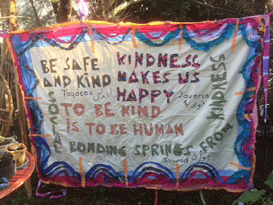 BE SAFE
AND KIND
Taqdees
KINDNESS
MAKES US
HAPPY
Javeria
TO BE KIND
IS TO BE HUMAN
BONDING SPRINGS FROM KINDNESS
Jawad